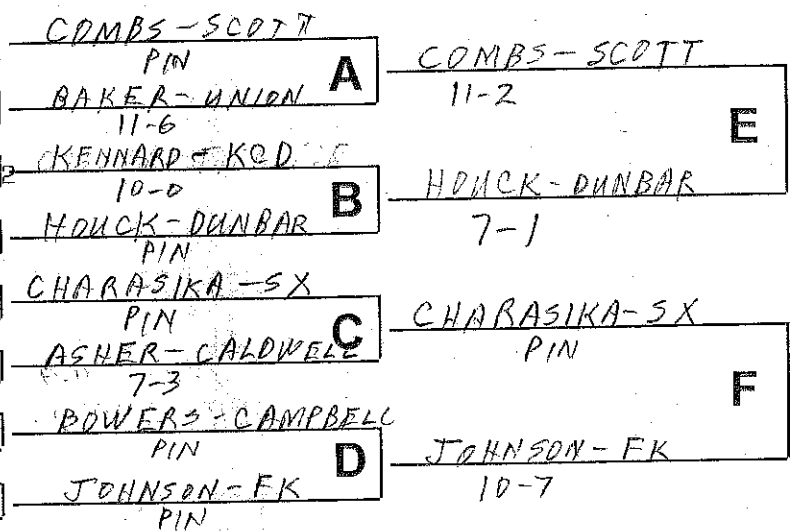 COMBS-SCOTT
PIN
A
BAKER-UNION
11-6
KENNARD-KCD
10-0
B
HOUCK-DUNBAR
PIN
CHARASIKA-SX
PIN
C
ASHER-CALDWELL
7-3
BOWERS-CAMPBELL
PIN
D
JOHNSON-FK
PIN
COMBS-SCOTT
11-2
E
HOUCK-DUNBAR
7-1
CHARASIKA-SX
PIN
F
JOHNSON-FK
10-7